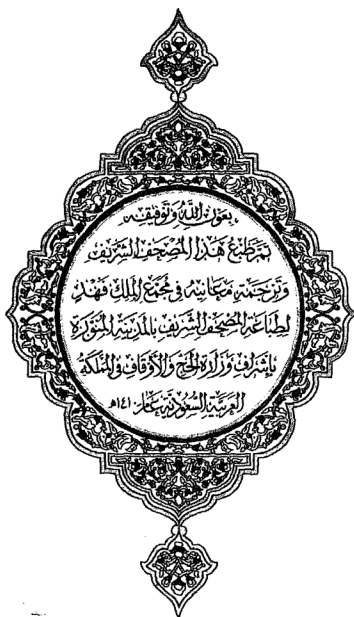 بعون الله وتوفيقه
تم طبع هذا المصحف الشريف
وترجمة معانيه في مجمع الملك فهد
لطباعة المصحف الشريف بالمدينة المنورة
بإشراف وزارة الحج والأوقاف في المملكة
العربية السعودية عام ١٤١٠هـ